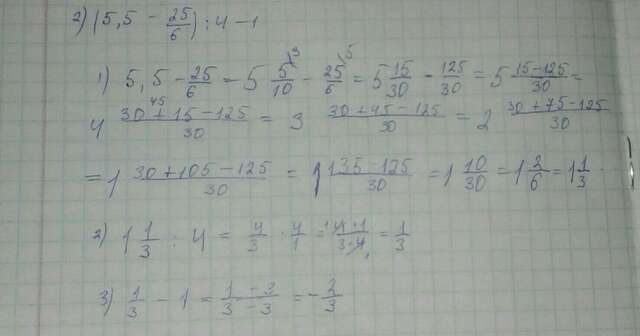 2) (5,5 - 25/6) : 4 - 1
1) 5,5 - 25/6 = 5 5/10 - 25/6 = 5 15/30 - 125/30 = 5 (15-125)/30 =
4 (30 + 15 - 125)/30 = 3 (30 + 45 - 125)/30 = 2 (30 + 75 - 125)/30
= 1 (30 + 105 - 125)/30 = 1 (135 - 125)/30 = 1 10/30 = 1 2/6 = 1 1/3
2) 1 1/3 : 4 = 4/3 · 4/1 = (4 · 1)/(3 · 4) = 1/3
3) 1/3 - 1 = 1/3 - 3/3 = - 2/3